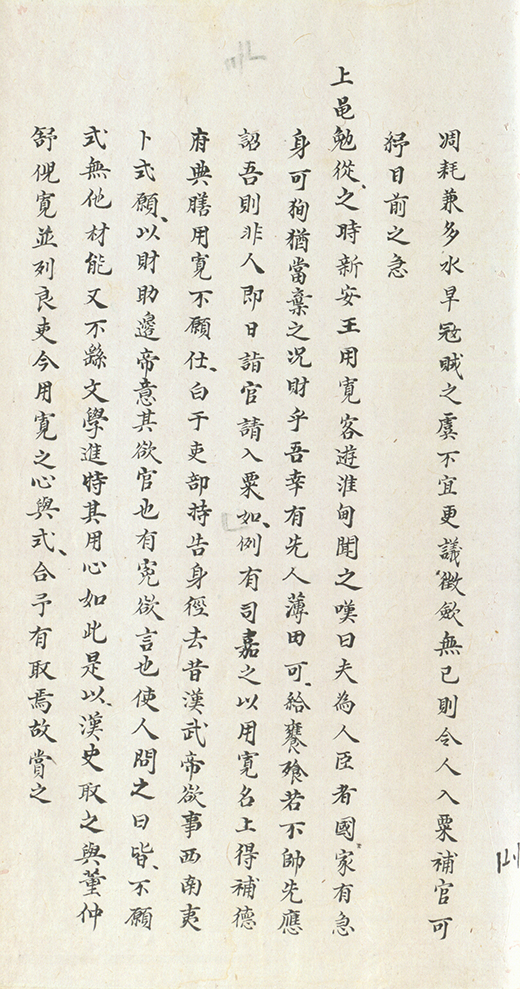 凋耗兼多水旱冦贼之虞不宜更議徴歛無已則令人入粟補官可
紓目前之急
上邑勉從之時新安王用寛客遊淮甸聞之嘆曰夫為人臣者國家有急
身可狥猶當棄之况財乎吾幸有先人薄田可給饔飱若不帥先應
詔吾則非人即日詣官請入粟如例有司嘉之以用寛名上得補德
府典膳用寛不願仕白于吏部持告身徑去昔漢武帝欲事西南夷
卜式願以財助邊帝意其欲官也有寃欲言也使人問之曰皆不願
式無他材能又不繇文學進特其用心如此是以漢史取之與董仲
舒倪寛並列良吏今用寛之心與式合予有取焉故賞之